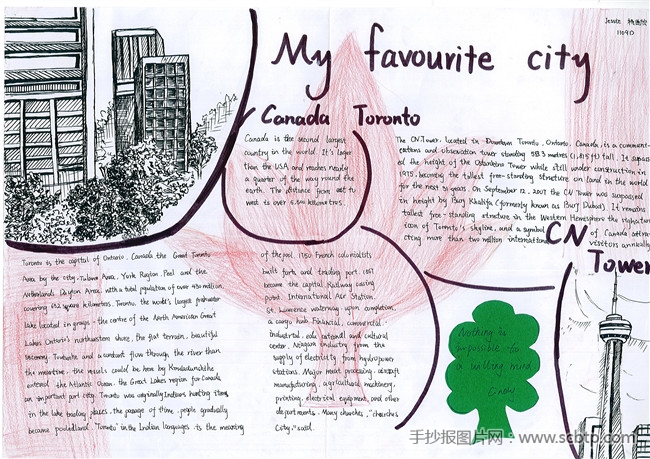 Jessie
My favourite city
Canada Toronto
Canada is the second largest
country in the world. It's larger
than the USA and reaches nearly
a quarter of the way round the
earth. The distance from east to
west is over 5,500 kilometres.
The CN Tower, located in Downtown Toronto, Ontario, Canada, is a communi-
cations and observation tower standing 553.3 metres (1,815 ft) tall. It surpass
ed the height of the Ostankino Tower while still under construction in
1975, becoming the tallest free-standing structure on land in the world
for the next 31 years. On September 12, 2007 the CN Tower was surpassed
in height by Burj Khalifa (formerly known as Burj Dubai). It remains
tallest free-standing structure in the Western Hemisphere the
icon of Toronto's skyline, and a symbol of Canada attra
cting more than two million international visitors annually
CN
Tower
Toronto is the capital of Ontario, Canada the Great Toronto
Area by the city, York Region, Peel and the
Netherlands Dayton Area, with a total population of over 430 million
covering 632 square kilometers. Toronto, the world's largest freshwater
lake located in groups - the centre of the North American Great
Lakes Ontario's northwestern shore, the flat terrain, beautiful
scenery. and a constant flow through the river than
the the vessels could be here by
entered the Atlantic Ocean, the Great Lakes region for Canada
an important port city. Toronto was originally Indians hunting items,
in the lake trading places. the passage of time, people gradually
became "Toronto" in the Indian languages is the meaning
of the 1750 French colonialists
built forts and trading port. 1867
became the capital Railway
point International Air Station.
St. Lawrence waterway upon completion,
a cargo hub. Financial, commercial,
industrial, and cultural
center. Niagara industry from the
supply of electricity from hydropower
stations. Major meat processing, aircraft
manufacturing, agricultural machinery,
printing, electrical equipment, and other
departments. Many churches, "churches
City," said.
Nothing is
impossible to
a willing mind
手抄报图片网:www.scbtp.com